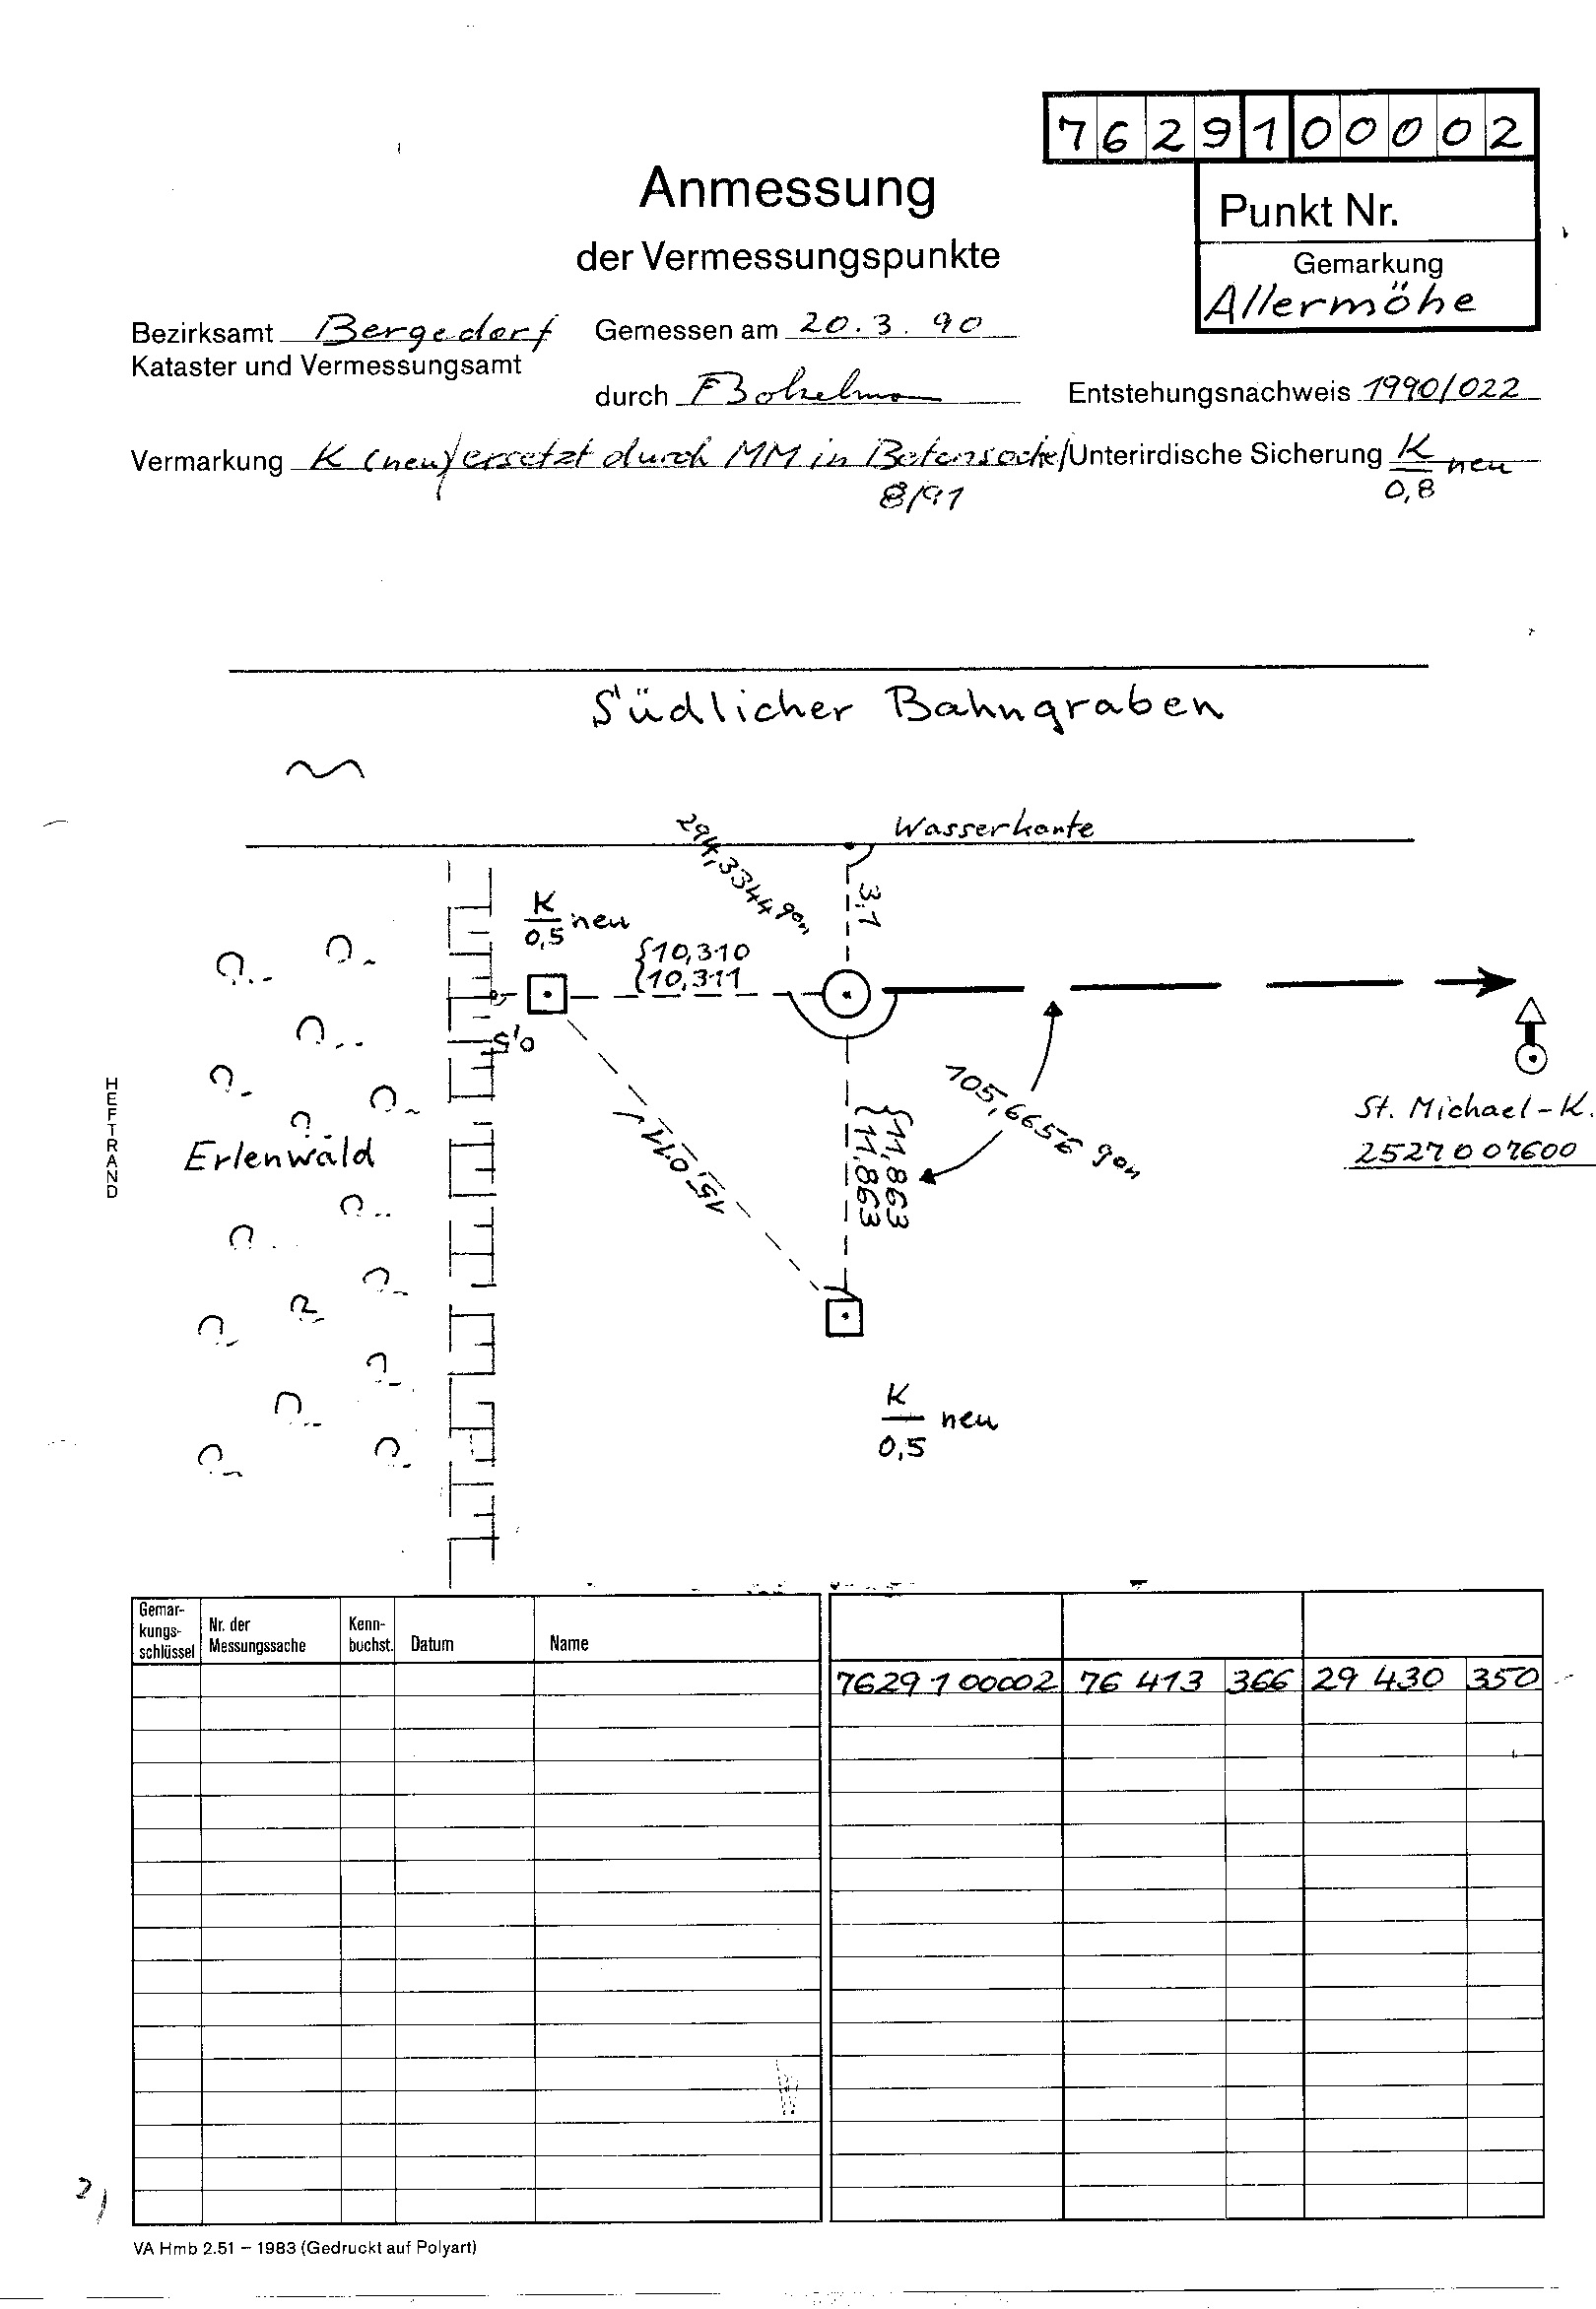 7629100002
Anmessung
der Vermessungspunkte
Punkt Nr.
Gemarkung
Allermöhe
Bezirksamt Bergedorf Gemessen am 20.3.90
Kataster und Vermessungsamt
durch Entstehungsnachweis 1990/022
Vermarkung K (neu) ersetzt durch MM in Unterirdische Sicherung K/0,8 neu
8/91
Südlicher Bahngraben
Wasserkante
294,3344 gon
3,1
K/0,5 neu
10,310
10,311
0,5
105,6656 gon
11,863
11,863
15,011
St. Michael-K.
2527007600
HEFTRAND
Erlenwald
K/0,5 neu
Gemar-
kungs-
schlüssel
Nr. der
Messungssache
Kenn-
buchst.
Datum
Name
7629100002 76 413 366 29 430 350
VA Hmb 2.51 – 1983 (Gedruckt auf Polyart)